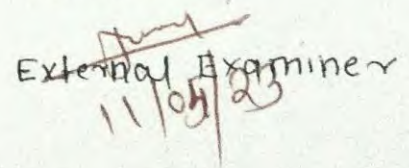 External Examiner
11/05/23